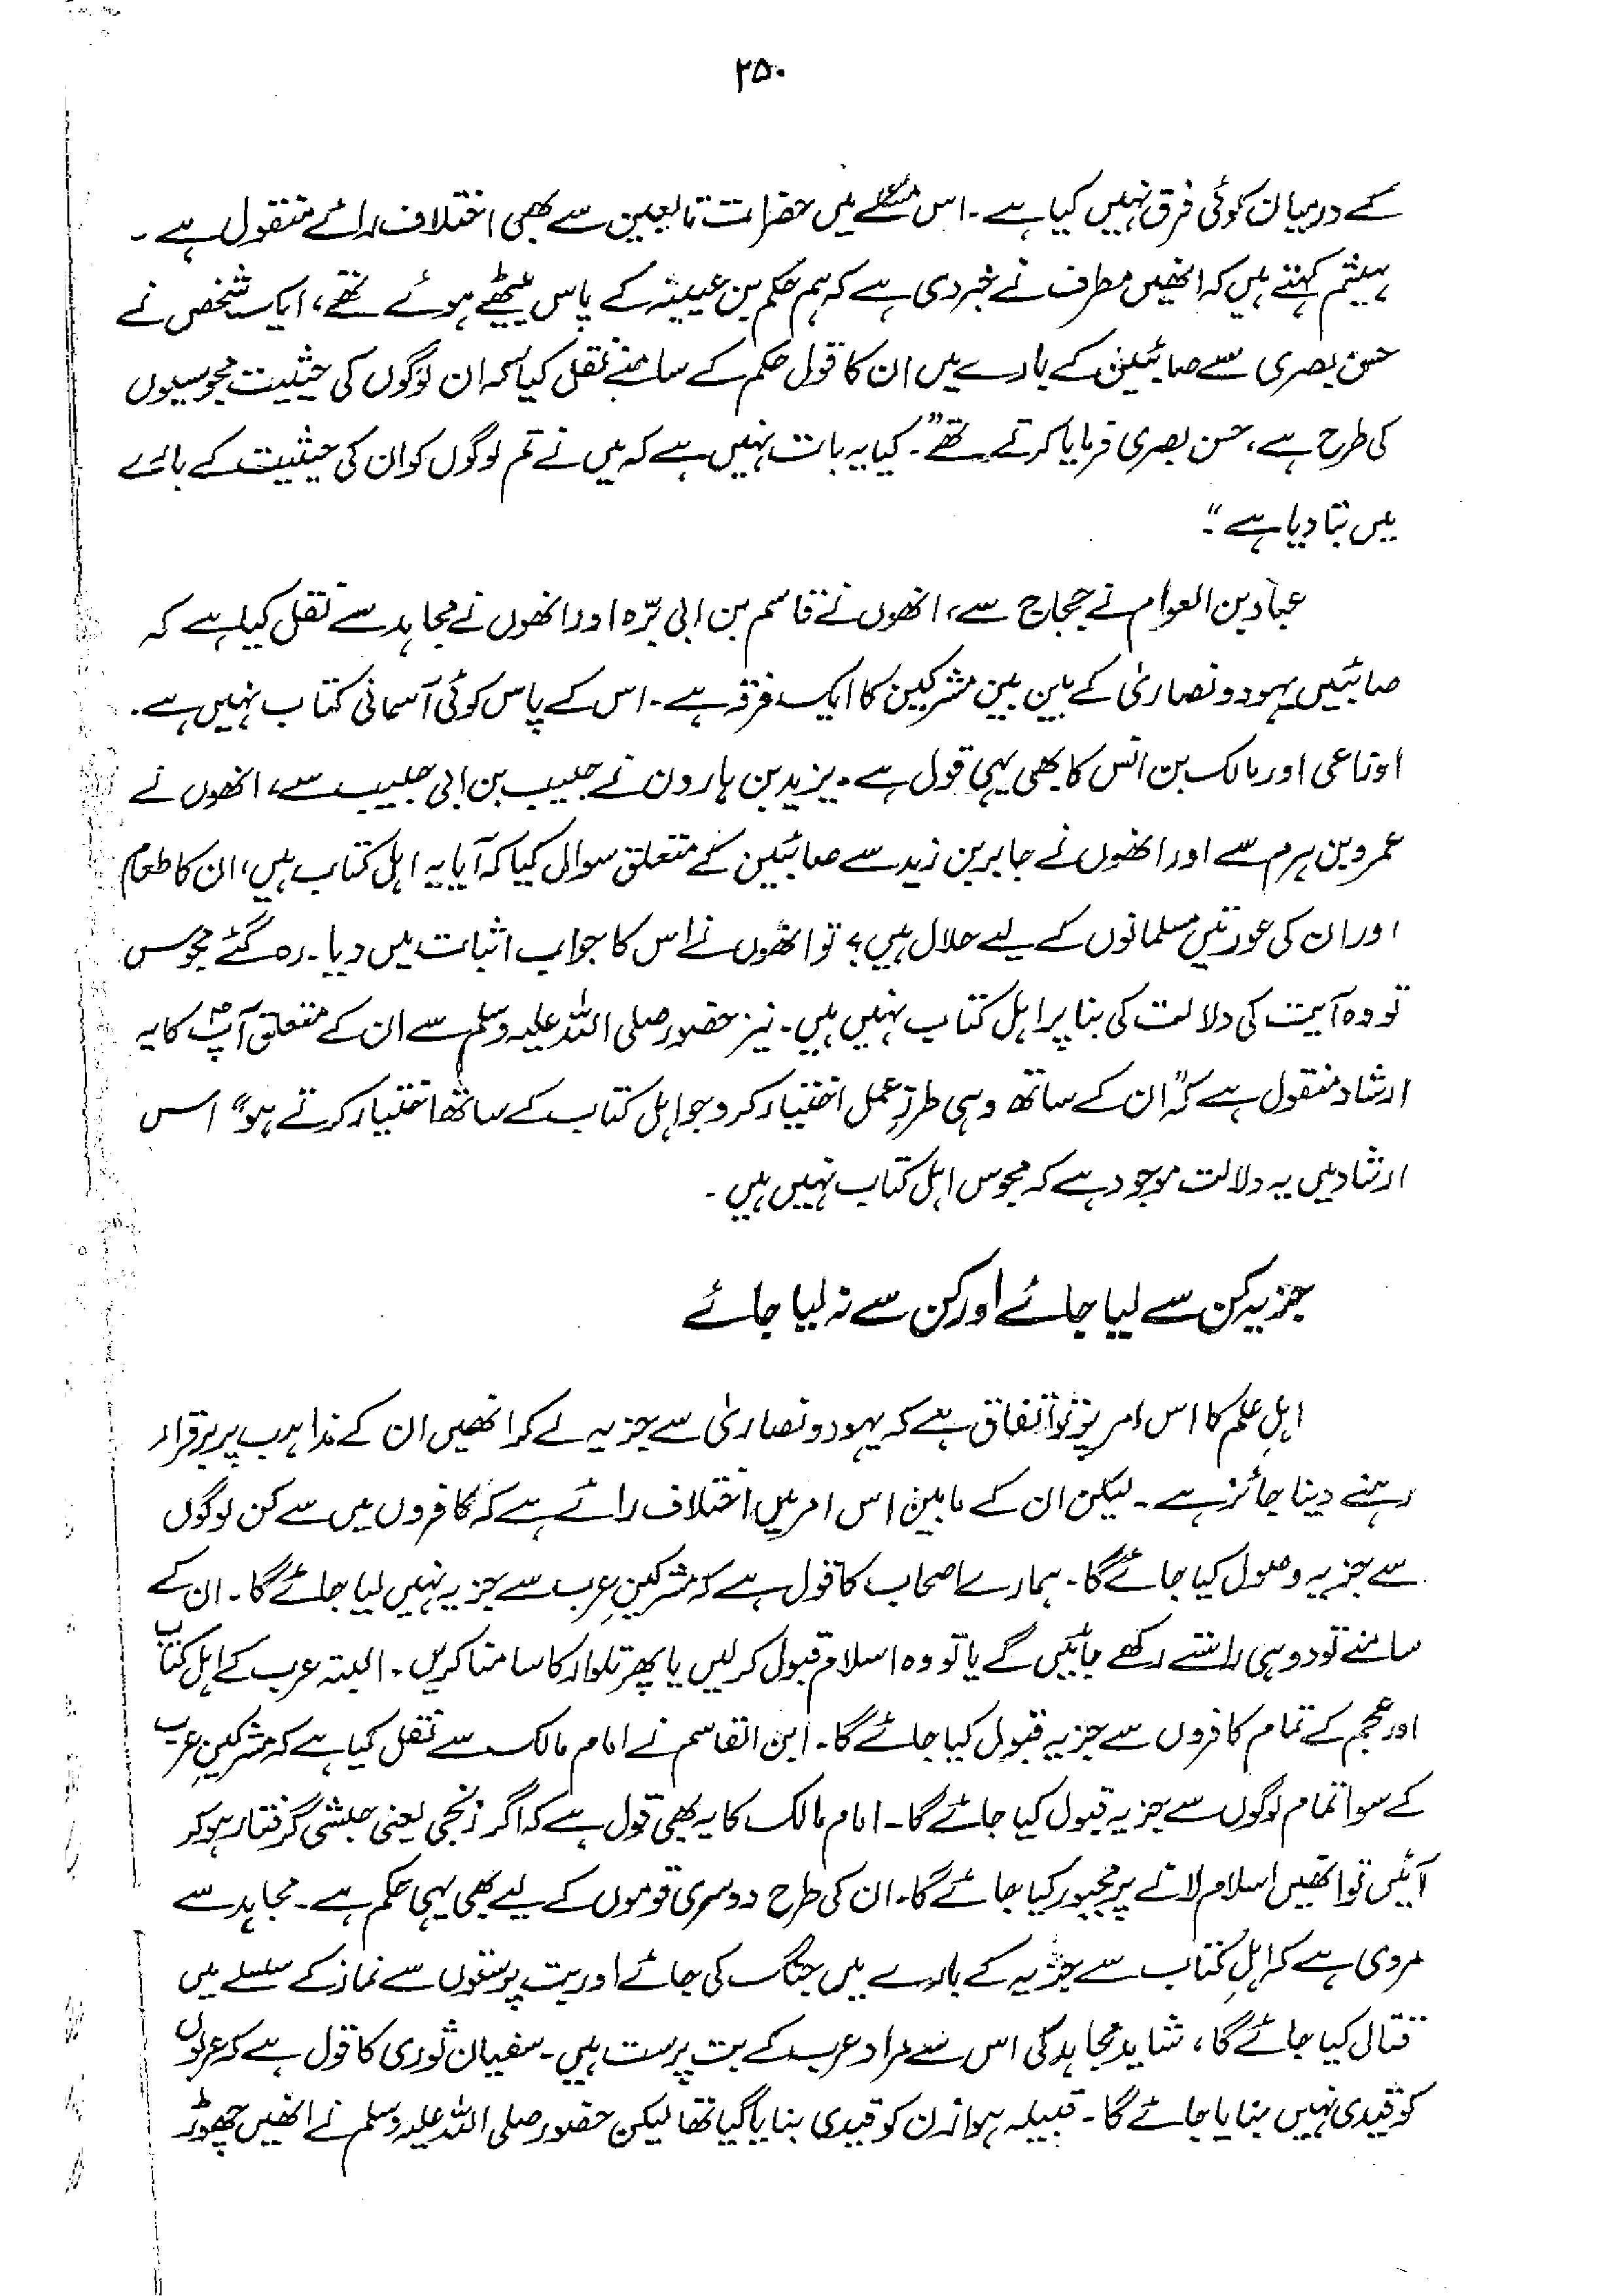 ۲۵۰
کے درمیان کوئی فرق نہیں کیا ہے۔ اس مسئلے میں حضرات تابعین سے بھی اختلاف رائے منقول ہے۔
ہیثم کہتے ہیں کہ انھیں مطرف نے خبر دی ہے کہ ہم حکم بن عیینہ کے پاس بیٹھے ہوئے تھے، ایک شخص نے
حسن بصری سے صائبین کے بارے میں ان کا قول حکم کے سامنے نقل کیا کہ ان لوگوں کی حیثیت مجوسیوں
کی طرح ہے، حسن بصری فرمایا کرتے تھے"۔ کیا یہ بات نہیں ہے کہ میں نے تم لوگوں کو ان کی حیثیت کے بارے
میں بتا دیا ہے"۔
عباد بن العوام نے حجاج سے، انھوں نے قاسم بن ابی بزّہ اور انھوں نے مجاہد سے نقل کیا ہے کہ
صائبین یہود و نصاریٰ کے بین بین مشرکین کا ایک فرقہ ہے۔ اس کے پاس کوئی آسمانی کتاب نہیں ہے۔
اوزاعی اور مالک بن انس کا بھی یہی قول ہے۔ یزید بن ہارون نے حبیب بن ابی حبیب سے، انھوں نے
عمرو بن ہرم سے اور انھوں نے جابر بن زید سے صائبین کے متعلق سوال کیا کہ آیا یہ اہل کتاب ہیں، ان کا طعام
اور ان کی عورتیں مسلمانوں کے لیے حلال ہیں؟ تو انھوں نے اس کا جواب اثبات میں دیا۔ رہ گئے مجوس
تو وہ آیت کی دلالت کی بنا پر اہل کتاب نہیں ہیں۔ نیز حضور صلی اللہ علیہ وسلم سے ان کے متعلق آپؐ کا یہ
ارشاد منقول ہے کہ "ان کے ساتھ وہی طرزِ عمل اختیار کرو جو اہل کتاب کے ساتھ اختیار کرتے ہو" اس
ارشاد میں یہ دلالت موجود ہے کہ مجوس اہل کتاب نہیں ہیں۔
جزیہ کن سے لیا جائے اور کن سے نہ لیا جائے
اہلِ علم کا اس امر پر تو اتفاق ہے کہ یہود و نصاریٰ سے جزیہ لے کر انھیں ان کے مذاہب پر برقرار
رہنے دینا جائز ہے۔ لیکن ان کے مابین اس امر میں اختلاف رائے ہے کہ کافروں میں سے کن لوگوں
سے جزیہ وصول کیا جائے گا۔ ہمارے اصحاب کا قول ہے کہ مشرکینِ عرب سے جزیہ نہیں لیا جائے گا۔ ان کے
سامنے تو دو ہی راستے رکھے جائیں گے یا تو وہ اسلام قبول کر لیں یا پھر تلوار کا سامنا کریں۔ البتہ عرب کے اہل کتاب
اور عجم کے تمام کافروں سے جزیہ قبول کیا جائے گا۔ ابن القاسم نے امام مالک سے نقل کیا ہے کہ مشرکینِ عرب
کے سوا تمام لوگوں سے جزیہ قبول کیا جائے گا۔ امام مالک کا یہ بھی قول ہے کہ اگر زنجی یعنی حبشی گرفتار ہو کر
آئیں تو انھیں اسلام لانے پر مجبور کیا جائے گا۔ ان کی طرح دوسری قوموں کے لیے بھی یہی حکم ہے۔ مجاہد سے
مروی ہے کہ اہلِ کتاب سے جزیہ کے بارے میں جنگ کی جائے اور بت پرستوں سے نماز کے سلسلے میں
قتال کیا جائے گا، شاید مجاہد کی اس سے مراد عرب کے بت پرست ہیں۔ سفیان ثوری کا قول ہے کہ عربوں
کو قیدی نہیں بنایا جائے گا۔ قبیلہ ہوازن کو قیدی بنایا گیا تھا لیکن حضور صلی اللہ علیہ وسلم نے انھیں چھوڑ